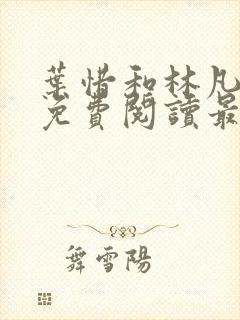 葉惜和林凡
免費閱讀最
舞雪陽